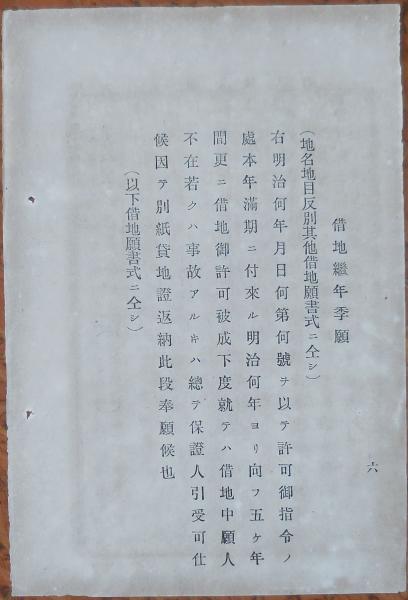 借地繼年季願
（地名地目反別其他借地願書式ニ仝シ）
右明治何年月日何第何號ヲ以テ許可御指令ノ
處本年滿期ニ付來ル明治何年ヨリ向フ五ケ年
間更ニ借地御許可被成下度就テハ借地中願人
不在若クハ事故アルキハ總テ保證人引受可仕
候因テ別紙貸地證返納此段奉願候也
（以下借地願書式ニ仝シ）
六